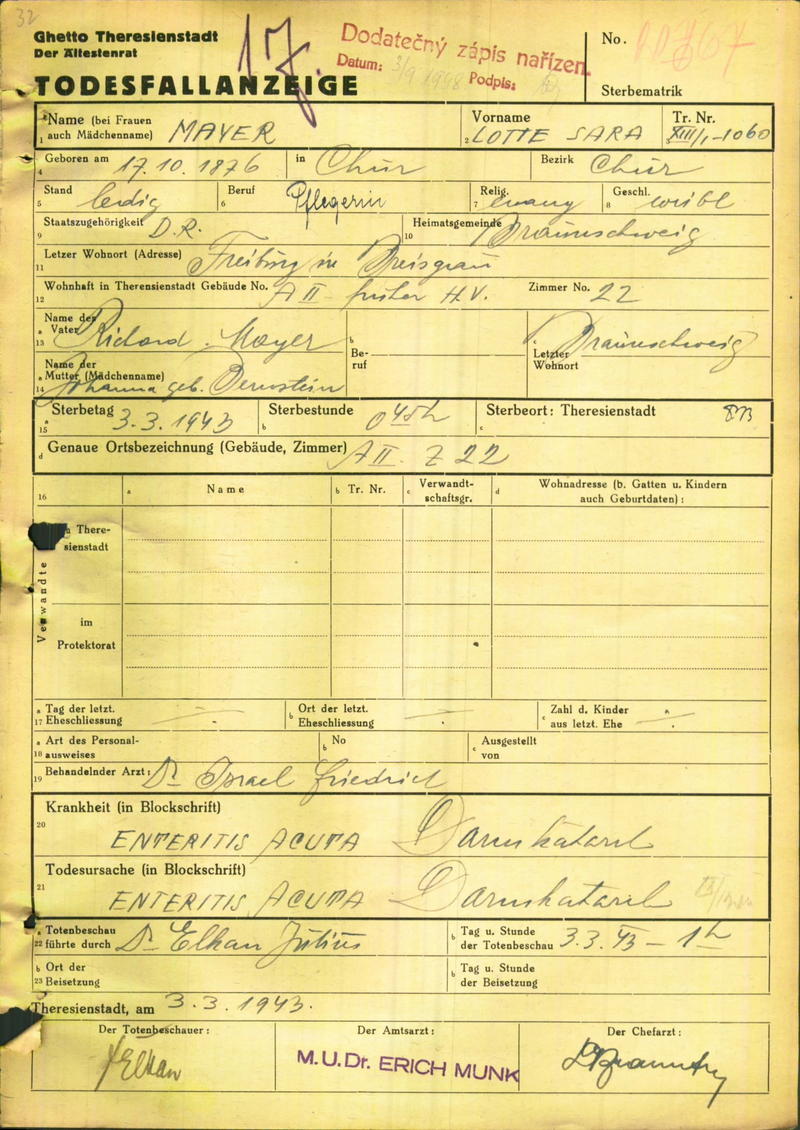 32
Ghetto Theresienstadt
Der Ältestenrat
TODESFALLANZEIGE
17.
Dodatečný zápis nařízen.
Datum: Podpis:
No.
Sterbematrik
Name (bei Frauen auch Mädchenname) MAYER
Vorname LOTTE SARA
Tr. Nr. XIII/1-1060
Geboren am 17.10.1876 in Chur Bezirk Chur
Stand ledig Beruf Pflegerin Relig. evang Geschl. weibl
Staatszugehörigkeit D.R. Heimatsgemeinde Braunschweig
Letzer Wohnort (Adresse) Freiburg in Breisgau
Wohnhaft in Theresienstadt Gebäude No. A II – früher H.V. Zimmer No. 22
Name des Vater Richard Mayer Beruf Letzter Wohnort Braunschweig
Name der Mutter (Mädchenname) Johanna geb. Bernstein
Sterbetag 3.3.1943 Sterbestunde 0 45 h Sterbeort: Theresienstadt
Genaue Ortsbezeichnung (Gebäude, Zimmer) A II. Z 22
16 a Name b Tr. Nr. c Verwandtschaftsgr. d Wohnadresse (b. Gatten u. Kindern auch Geburtdaten):
Verwandte
Theresienstadt
im Protektorat
17 a Tag der letzt. Eheschliessung - b Ort der letzt. Eheschliessung - c Zahl d. Kinder aus letzt. Ehe -
18 a Art des Personalausweises b No c Ausgestellt von
19 Behandelnder Arzt: Dr Israel Friedrich
Krankheit (in Blockschrift)
20 ENTERITIS ACUTA Darmkatarrh
Todesursache (in Blockschrift)
21 ENTERITIS ACUTA Darmkatarrh
22 a Totenbeschau führte durch Dr Elkan Julius b Tag u. Stunde der Totenbeschau 3.3.43 – 1 h
23 b Ort der Beisetzung b Tag u. Stunde der Beisetzung
Theresienstadt, am 3.3.1943.
Der Totenbeschauer: Der Amtsarzt: Der Chefarzt:
Elkan M.U.Dr. ERICH MUNK